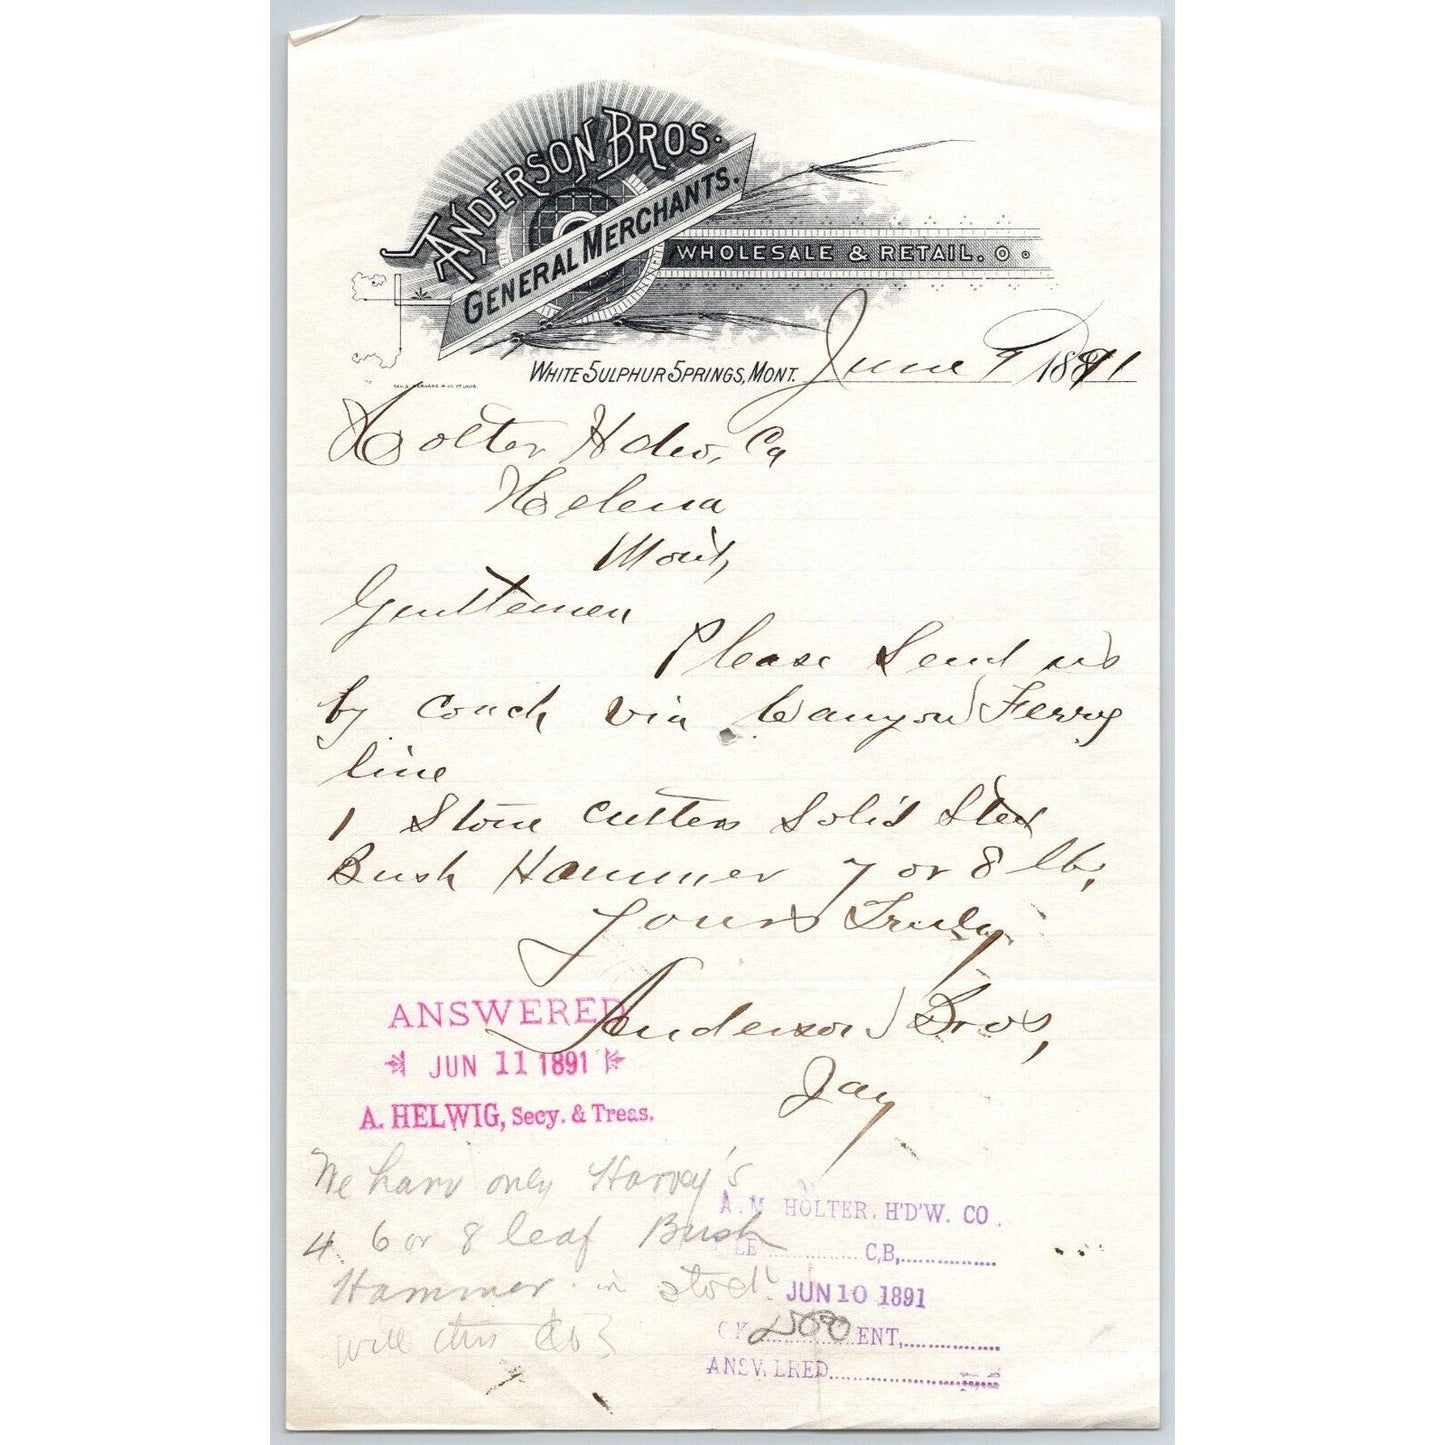 ANDERSON BROS.
GENERAL MERCHANTS.
WHOLESALE & RETAIL.
WHITE SULPHUR SPRINGS, MONT. June 9 1891
Holter Hdw, Co
Helena
Mont,
Gentlemen
Please Send us
by coach via Canyon Ferry
line
1 Stone Cutters Solid Steel
Bush Hammer 7 or 8 lb,
Yours Truly
Anderson Bros,
Jay
ANSWERED
JUN 11 1891
A. HELWIG, Secy. & Treas.
We have only Harvey's
4 6 or 8 leaf Bush
Hammer in stock
will this do?
A. M. HOLTER. H'D'W. CO.
C,B,
JUN 10 1891
ENT,
ANSWERED